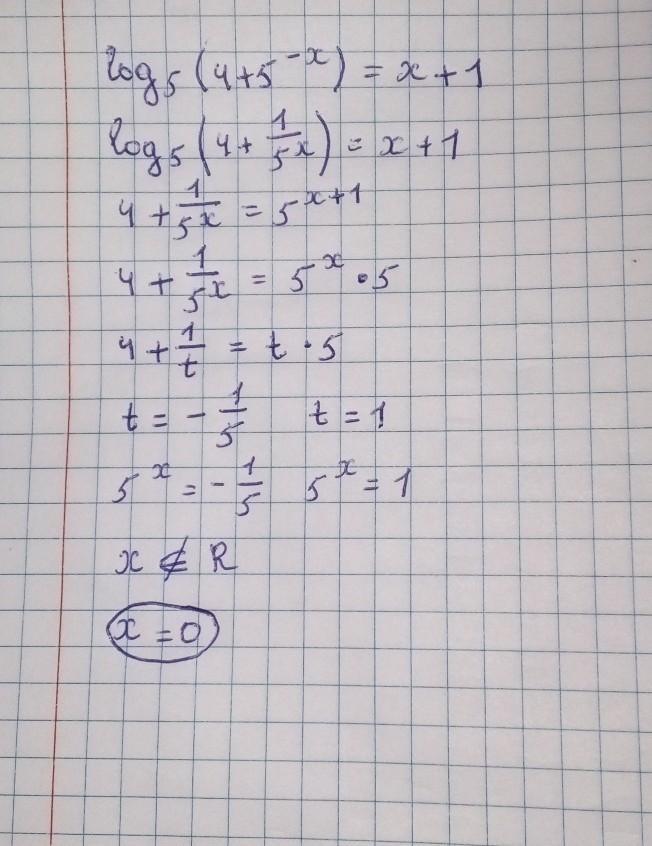 log₅(4+5^{-x}) = x+1
log₅(4+\frac{1}{5^x}) = x+1
4+\frac{1}{5^x} = 5^{x+1}
4+\frac{1}{5^x} = 5^x • 5
4+\frac{1}{t} = t • 5
t = -\frac{1}{5} t = 1
5^x = -\frac{1}{5} 5^x = 1
x ∉ R
x = 0